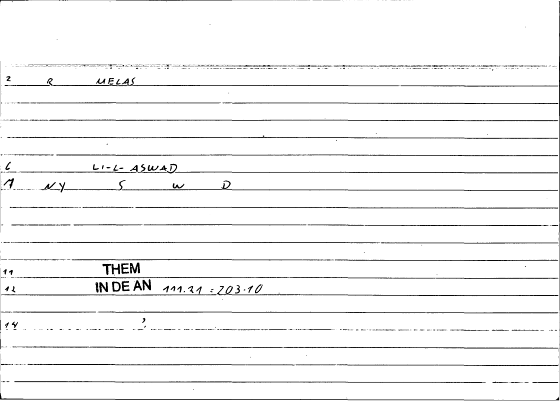 2 R MELAS
6 LI-L-ASWAD
7 NY S W D
11 THEM
12 IN DE AN 111.21 = 203.10
14 ,